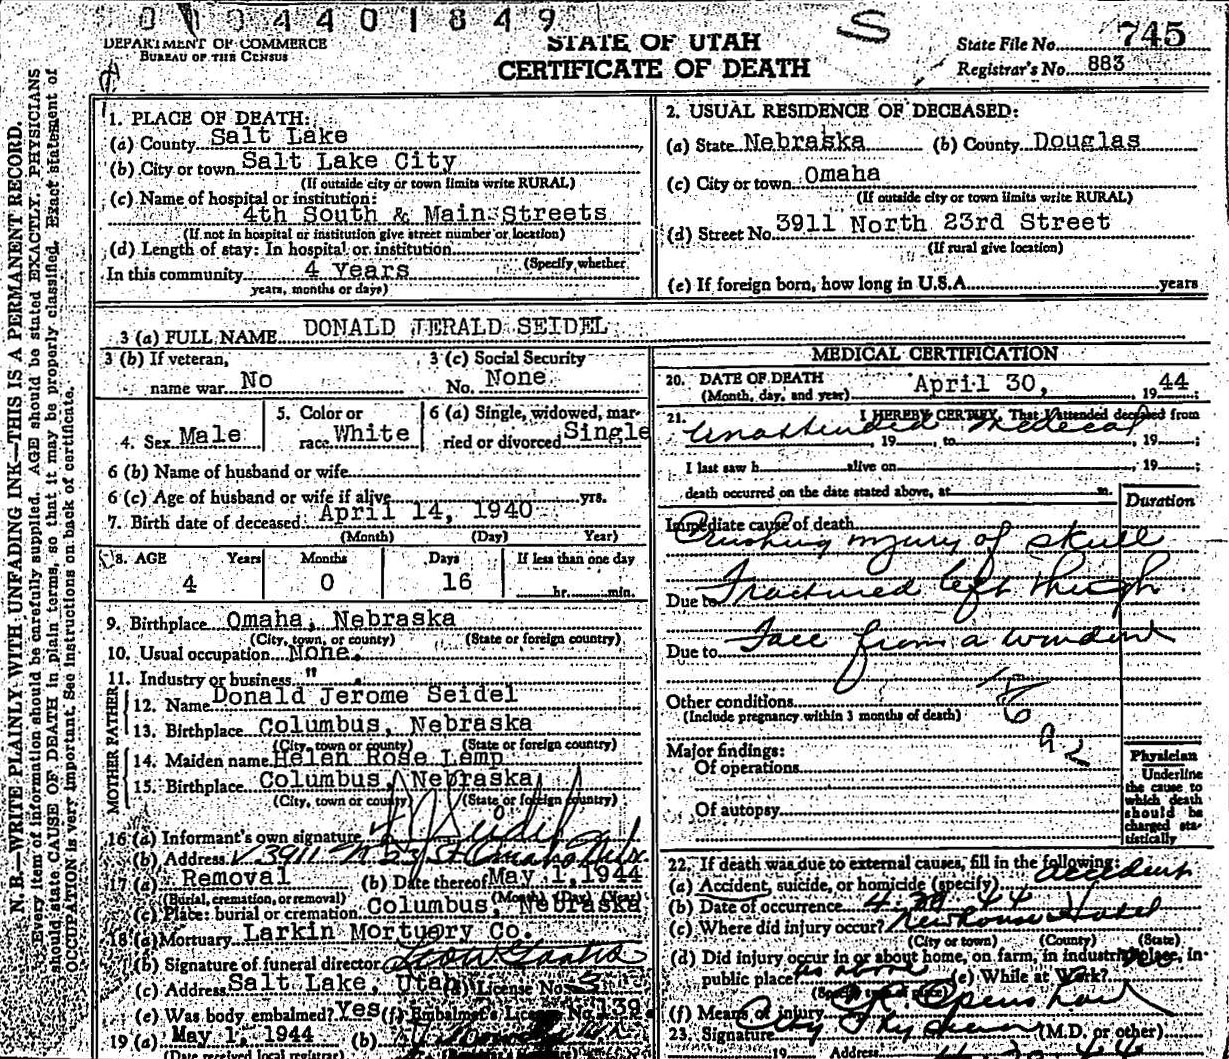 0 0 0 4 4 0 1 8 4 9
DEPARTMENT OF COMMERCE
BUREAU OF THE CENSUS
STATE OF UTAH
CERTIFICATE OF DEATH
S
State File No. 745
Registrar's No. 883
N. B.—WRITE PLAINLY WITH UNFADING INK—THIS IS A PERMANENT RECORD.
Every item of information should be carefully supplied. AGE should be stated EXACTLY. PHYSICIANS
should state CAUSE OF DEATH in plain terms, so that it may be properly classified. Exact statement of
OCCUPATION is very important. See instructions on back of certificate.
1. PLACE OF DEATH:
(a) County Salt Lake
(b) City or town Salt Lake City
(If outside city or town limits write RURAL)
(c) Name of hospital or institution:
4th South & Main Streets
(If not in hospital or institution give street number or location)
(d) Length of stay: In hospital or institution
(Specify whether
In this community 4 Years
years, months or days)
2. USUAL RESIDENCE OF DECEASED:
(a) State Nebraska (b) County Douglas
(c) City or town Omaha
(If outside city or town limits write RURAL)
(d) Street No. 3911 North 23rd Street
(If rural give location)
(e) If foreign born, how long in U.S.A. years
3 (a) FULL NAME DONALD JERALD SEIDEL
3 (b) If veteran, name war No
3 (c) Social Security No. None
4. Sex Male
5. Color or race White
6 (a) Single, widowed, married or divorced Single
6 (b) Name of husband or wife
6 (c) Age of husband or wife if alive yrs.
7. Birth date of deceased April 14, 1940
(Month) (Day) Year)
8. AGE Years Months Days If less than one day
4 0 16 hr. min.
9. Birthplace Omaha, Nebraska
(City, town, or county) (State or foreign country)
10. Usual occupation None.
11. Industry or business " .
FATHER
12. Name Donald Jerome Seidel
13. Birthplace Columbus, Nebraska
(City, town or county) (State or foreign country)
MOTHER
14. Maiden name Helen Rose Lemp
15. Birthplace Columbus, Nebraska
(City, town or county) (State or foreign country)
16 (a) Informant's own signature D J Seidel
(b) Address 3911 N 23 St Omaha Nebr.
17 (a) Removal (b) Date thereof May 1, 1944
(Burial, cremation, or removal) (Month) (Day) (Year)
(c) Place: burial or cremation Columbus, Nebraska
18 (a) Mortuary Larkin Mortuary Co.
(b) Signature of funeral director
(c) Address Salt Lake, Utah (d) License No. 3
(e) Was body embalmed? Yes (f) Embalmer's License No. 139
19 (a) May 1, 1944 (b)
(Date received local registrar)
MEDICAL CERTIFICATION
20. DATE OF DEATH April 30, 1944
(Month, day, and year)
21. I HEREBY CERTIFY, That I attended deceased from
Unattended Medical , 19 , to , 19 ;
I last saw h alive on , 19 ;
death occurred on the date stated above, at m.
Duration
Immediate cause of death
Crushing injury of skull
Due to Fractured left thigh
Due to Fall from a window
Other conditions
(Include pregnancy within 3 months of death)
186
92
Major findings:
Of operations
Of autopsy
Physician
Underline
the cause to
which death
should be
charged sta-
tistically
22. If death was due to external causes, fill in the following:
(a) Accident, suicide, or homicide (specify) accident
(b) Date of occurrence 4 30 44
(c) Where did injury occur? Newhouse Hotel
(City or town) (County) (State)
(d) Did injury occur in or about home, on farm, in industrial place, in
public place? as above (e) While at Work? no
(f) Means of injury
23. Signature (M.D. or other)
19 Address